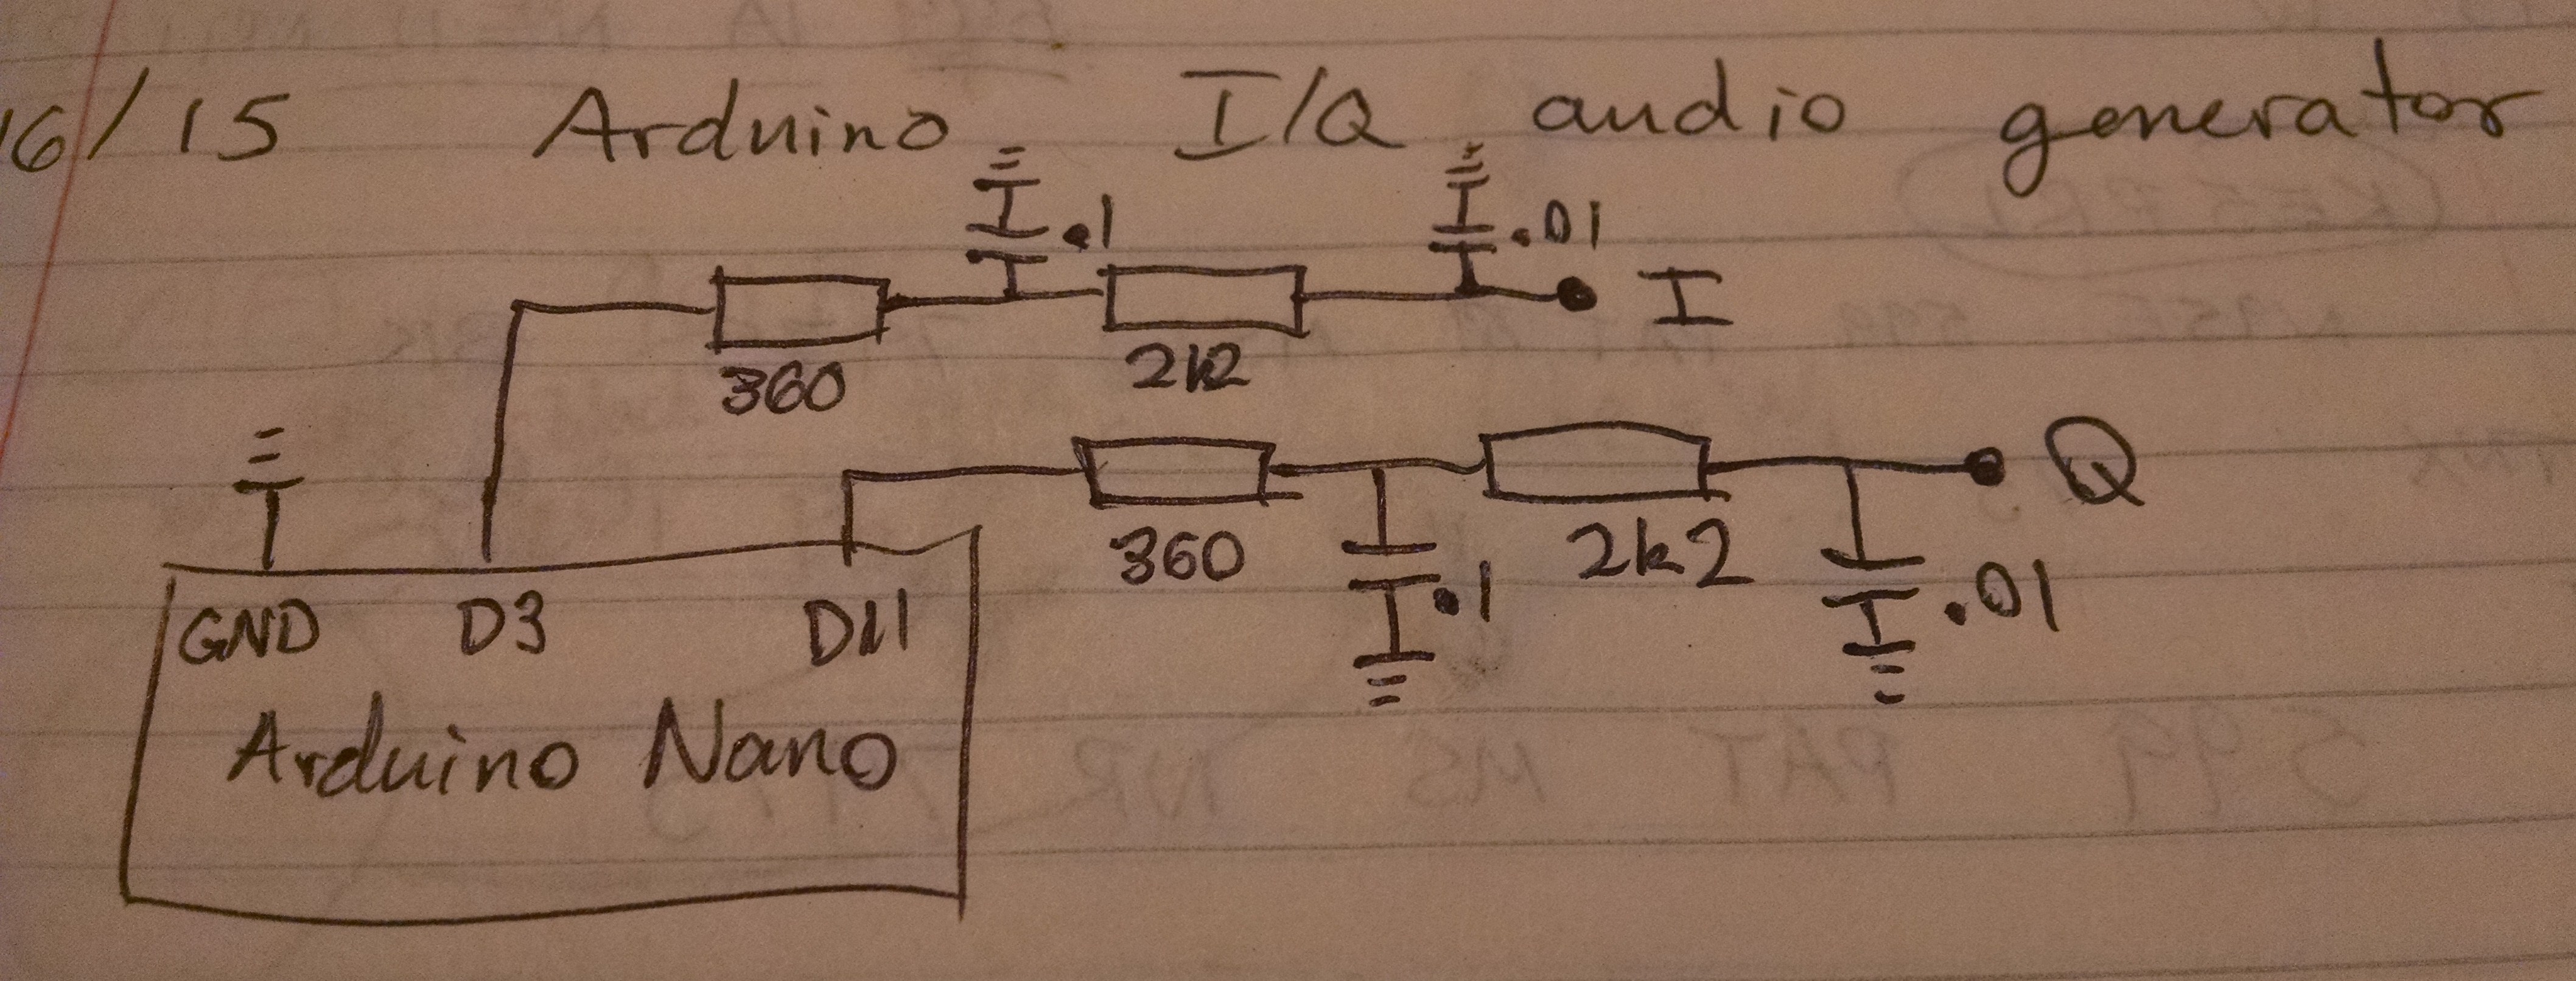 16/15 Arduino I/Q audio generator
.1 .01
I
360 2k2
Q
360 2k2
.1 .01
GND D3 D11
Arduino Nano
599 PAT MS NR